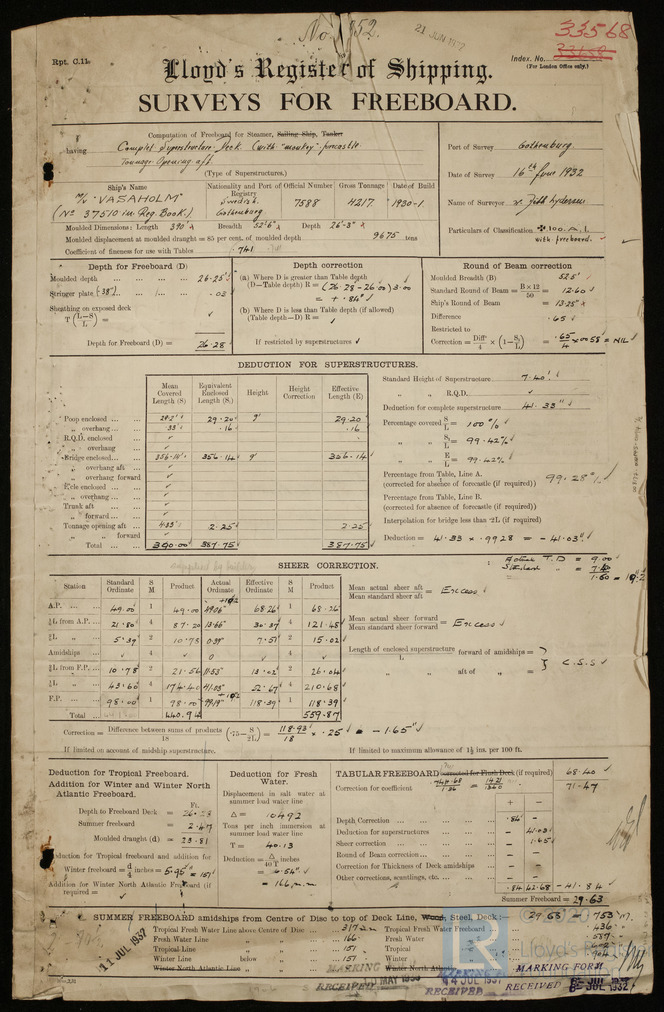 No 1352.
21 JUN 1932
33568
Rpt. C.11.
Index. No. 33658
(For London Office only.)
Lloyd's Register of Shipping.
SURVEYS FOR FREEBOARD.
Computation of Freeboard for Steamer, Sailing Ship, Tanker
having Complet Superstructure Deck (with "monkey" forecastle
Tonnage Opening aft.
(Type of Superstructures.)
Port of Survey Gothenburg
Date of Survey 16th June 1932
Name of Surveyor
Particulars of Classification ✠ 100. A. 1.
with freeboard.
Ship's Name
Nationality and Port of Registry
Official Number
Gross Tonnage
Date of Build
M/V "VASAHOLM"
(No 37510 in Reg. Book.)
Swedish.
Gothenburg
7588
4217
1930-1.
Moulded Dimensions: Length 390' Breadth 52'6" Depth 26'-3"
Moulded displacement at moulded draught = 85 per cent. of moulded depth 9675 tons
Coefficient of fineness for use with Tables .741
Depth for Freeboard (D)
Moulded depth ... 26.25'
Stringer plate (.38") ... .03
Sheathing on exposed deck
T(L-S/L) =
Depth for Freeboard (D) = 26.28
Depth correction
(a) Where D is greater than Table depth
(D—Table depth) R = (26.28-26.00) 3.00
= + .84"
(b) Where D is less than Table depth (if allowed)
(Table depth—D) R =
If restricted by superstructures
Round of Beam correction
Moulded Breadth (B) 52.5'
Standard Round of Beam = B×12/50 = 12.60
Ship's Round of Beam = 13.25"
Difference .65
Restricted to
Correction = Diff/4 × (1-S/L) = .65/4 × .0058 = NIL
DEDUCTION FOR SUPERSTRUCTURES.
Mean Covered Length (S)
Equivalent Enclosed Length (S₁)
Height
Height Correction
Effective Length (E)
Poop enclosed ... 29.20 9' 29.20
„ overhang ... .33' .16 .16
R.Q.D. enclosed
„ overhang
Bridge enclosed... 356.14 9' 356.14
„ overhang aft
„ overhang forward
F'cle enclosed
„ overhang
Trunk aft
„ forward
Tonnage opening aft 4.33' 2.25 2.25
„ „ forward
Total ... 390.00' 387.75 387.75
Standard Height of Superstructure 7.40'
„ „ R.Q.D.
Deduction for complete superstructure 41.33"
Percentage covered S/L = 100%
„ „ S₁/L = 99.42%
„ „ E/L = 99.42%
Percentage from Table, Line A. 99.28%
(corrected for absence of forecastle (if required))
Percentage from Table, Line B.
(corrected for absence of forecastle (if required))
Interpolation for bridge less than ·2L (if required)
Deduction = 41.33 × .9928 = - 41.03"
SHEER CORRECTION.
Actual T.D = 9.00
Standard „ = 7.40
1.60 = 19.2
Station
Standard Ordinate
S M
Product
Actual Ordinate
Effective Ordinate
S M
Product
A.P. ... 49.00 1 49.00 68.26 1 68.26
⅙L from A.P. ... 21.80 4 87.20 30.37 4 121.48
⅓L „ 5.39 2 10.78 7.51 2 15.02
Amidships 4 0 4
⅓L from F.P. ... 10.78 2 21.56 13.02 2 26.04
⅙L „ 43.60 4 174.40 52.67 4 210.68
F.P. ... 98.00 1 98.00 118.39 1 118.39
Total ... 440.94 559.87
Mean actual sheer aft
Mean standard sheer aft = Excess
Mean actual sheer forward
Mean standard sheer forward = Excess
Length of enclosed superstructure forward of amidships =
L
„ „ aft of „ = } C.S.S
Correction = Difference between sums of products/18 (·75- S/2L) = 118.93/18 × .25 = - 1.65"
If limited on account of midship superstructure.
If limited to maximum allowance of 1½ ins. per 100 ft.
Deduction for Tropical Freeboard.
Addition for Winter and Winter North Atlantic Freeboard.
Ft.
Depth to Freeboard Deck = 26.28
Summer freeboard = 2.47
Moulded draught (d) = 23.81
Deduction for Tropical freeboard and addition for
Winter freeboard = d/4 inches = 5.95" = 151
Addition for Winter North Atlantic Freeboard (if required) =
Deduction for Fresh Water.
Displacement in salt water at summer load water line
Δ = 10492
Tons per inch immersion at summer load water line
T = 40.13
Deduction = Δ/40T inches
= 6.54"
= 166 m.m
TABULAR FREEBOARD corrected for Flush Deck (if required) 68.40
Correction for coefficient .741+.68/1.36 = 1.421/1.360 71.47
+ -
Depth Correction ... .84 -
Deduction for superstructures ... - 41.03
Sheer correction ... - 1.65
Round of Beam correction ... - -
Correction for Thickness of Deck amidships ... - -
Other corrections, scantlings, etc. ... - -
.84 42.68 - 41.84
Summer Freeboard = 29.63
SUMMER FREEBOARD amidships from Centre of Disc to top of Deck Line, Wood, Steel, Deck: 29.63 753
Tropical Fresh Water Line above Centre of Disc ... 317
Tropical Fresh Water Freeboard 436
Fresh Water Line „ „ 166
Fresh Water „ 587
Tropical Line „ „ 151
Tropical „ 602
Winter Line below „ „ 151
Winter „ 904
Winter North Atlantic Line „ „
Winter North Atlantic „
11 JUL 1932
MARKING FORM
RECEIVED
MARKING FORM
RECEIVED
MARKING FORM
RECEIVED 8- JUL 1932
LR
© 2020
Lloyd's Register